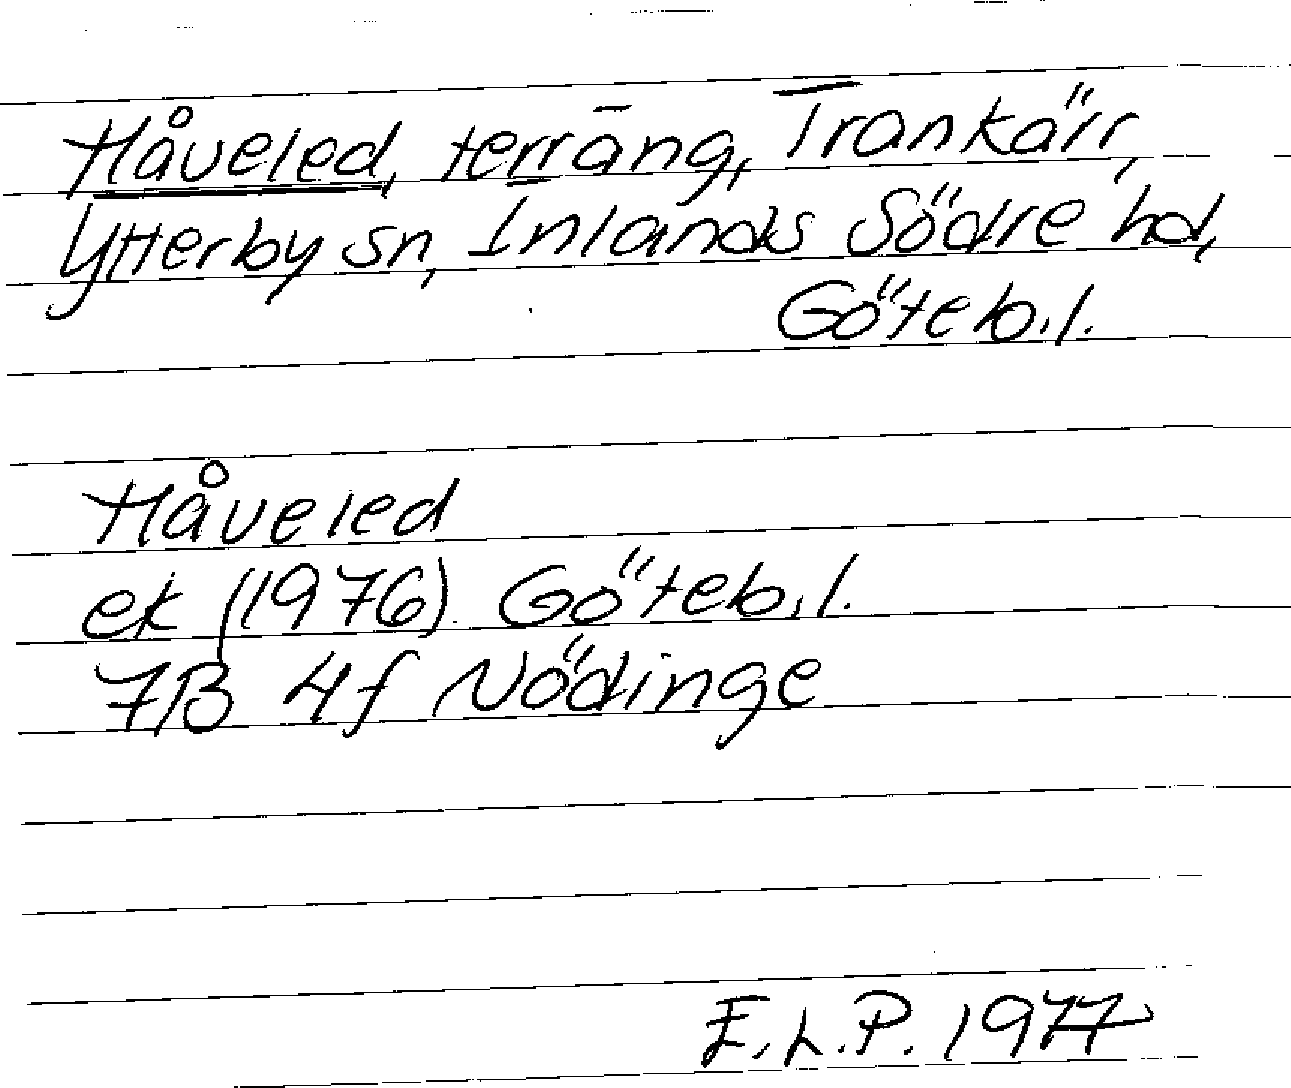 Håveled, terräng, Trankärr,
Ytterby sn, Inlands Södre hd,
Göteb.l.
Håveled
ek (1976) Göteb.l.
7B 4f Nödinge
E.L.P. 1977